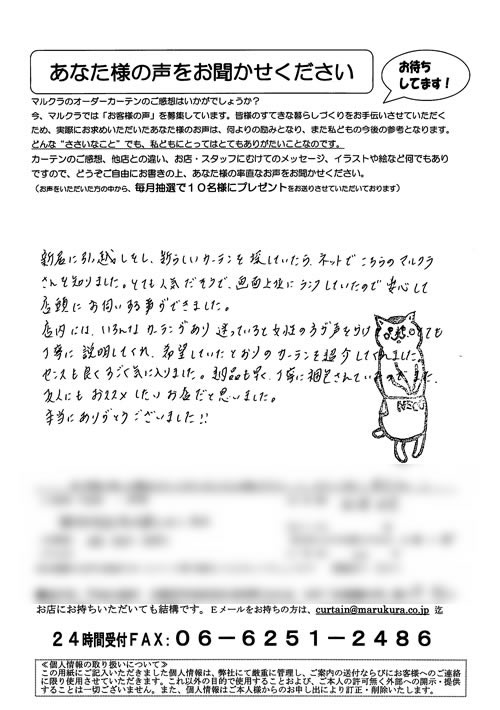 あなた様の声をお聞かせください
お待ち
してます！
マルクラのオーダーカーテンのご感想はいかがでしょうか？
今、マルクラでは「お客様の声」を募集しています。皆様のすてきな暮らしづくりをお手伝いさせていただく
ため、実際にお求めいただいたあなた様のお声は、何よりの励みとなり、また私どもの今後の参考となります。
どんな“ささいなこと”でも、私どもにとってはとてもありがたいことなのです。
カーテンのご感想、他店との違い、お店・スタッフにむけてのメッセージ、イラストや絵など何でもあり
ですので、どうぞご自由にお書きの上、あなた様の率直なお声をお聞かせください。
（お声をいただいた方の中から、毎月抽選で１０名様にプレゼントをお送りさせていただいております）
新居に引越しをし、新らしいカーテンを探していたら、ネットでこちらのマルクラ
さんを知りました。とても人気だそうで、画面上位にランクしていたので安心して
店頭にお伺いする事ができました。
店内には、いろんなカーテンがあり迷っていると女性の方が声をかけ とても
丁寧に説明してくれ、希望していたとおりのカーテンを紹介してくれました。
センスも良くすごく気に入りました。納品も早く、丁寧に梱包されていた ました、
友人にもおススメしたいお店だと思いました。
本当にありがとうございました!!
NECO
お店にお持ちいただいても結構です。Ｅメールをお持ちの方は、curtain@marukura.co.jp 迄
２４時間受付ＦＡＸ：０６－６２５１－２４８６
≪個人情報の取り扱いについて≫
この用紙にご記入いただきました個人情報は、弊社にて厳重に管理し、ご案内の送付ならびにお客様へのご連絡
に限り使用させていただきます。これ以外の目的で使用することおよび、ご本人の許可無く外部への開示・提供
することは一切ございません。また、個人情報はご本人様からのお申し出により訂正・削除いたします。